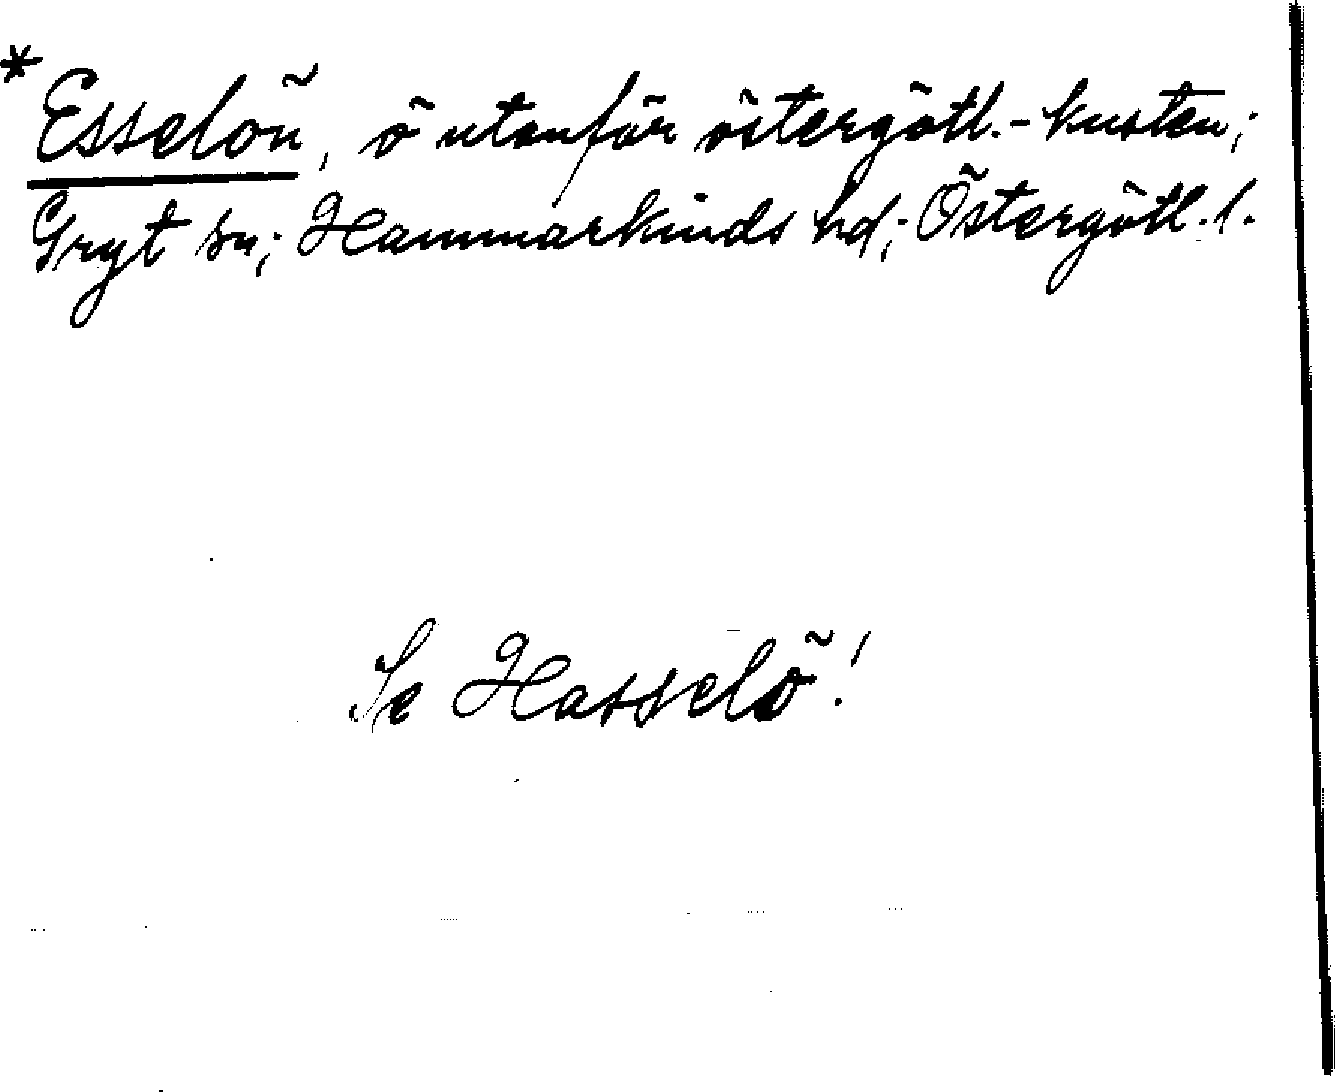 * Esselön, ö utanför östergötl.-kusten;
Gryt sn; Hammarkinds hd; Östergötl. l.
Se Hasselö!